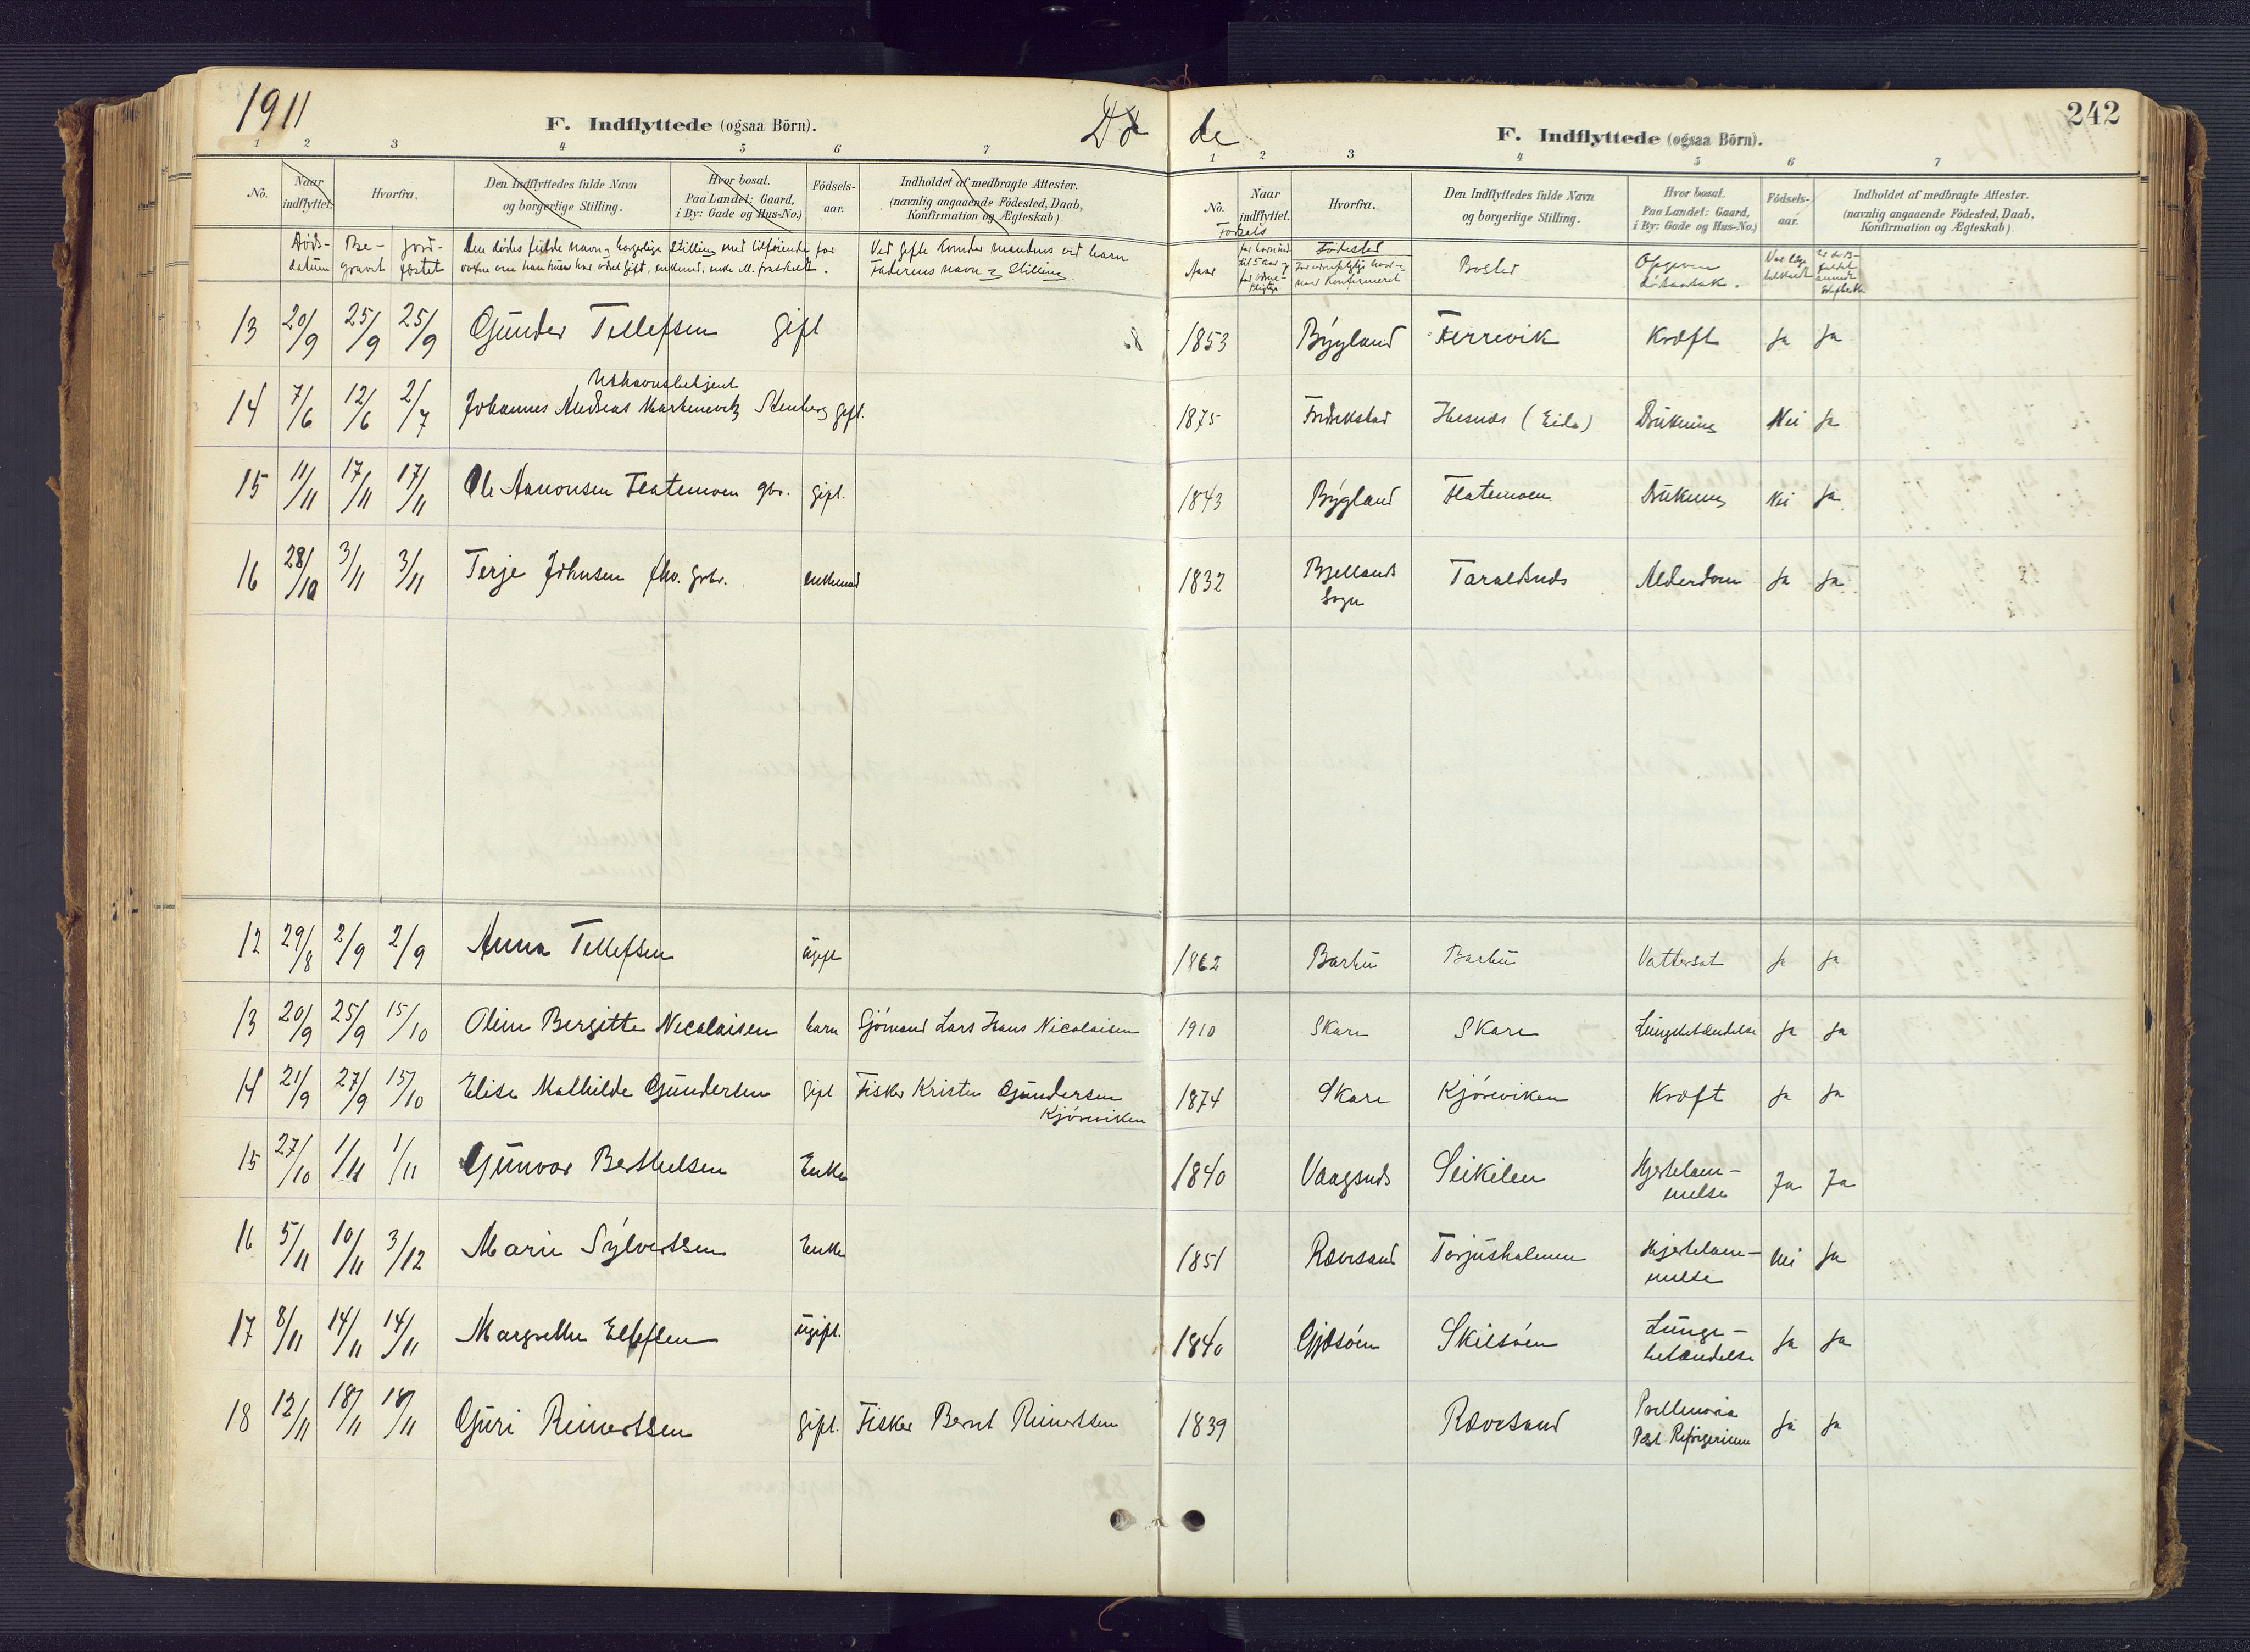 1911
F. Indflyttede (ogsaa Börn).
Dö de
F. Indflyttede (ogsaa Börn).
242
1 2 3 4 5 6 7
1 2 3 4 5 6 7
No. Naar indflyttet. Hvorfra. Den Indflyttedes fulde Navn og borgerlige Stilling. Hvor bosat. Paa Landet: Gaard, i By: Gade og Hus-No.) Födsels-aar. Indholdet af medbragte Attester. (navnlig angaaende Födested, Daab, Konfirmation og Ægteskab).
No. Naar indflyttet. Hvorfra. Den Indflyttedes fulde Navn og borgerlige Stilling. Hvor bosat. Paa Landet: Gaard, i By: Gade og Hus-No.) Födsels-aar. Indholdet af medbragte Attester. (navnlig angaaende Födested, Daab, Konfirmation og Ægteskab).
Døds-datum Be-gravet Jord-fæstet Den dødes fulde navn, borgerlige Stilling med tilføiende for
Ved gifte Kvinder mandens ved barn Faderens navn og Stilling.
Fødsels Aar Fødested Bosted Opgiven dødsaarsak.
13 20/9 25/9 25/9 Gunder Tellefsen gift 1853 Bygland Terrevik Kræft Ja Ja
14 7/6 12/6 2/7 Johannes Andreas Stenberg gift. 1875 Fredrikstad Hesnæs (Eide) Drukning Nei Ja
15 11/11 17/11 17/11 Ole Aanonsen Flatemoen gbr. gift. 1843 Bygland Flatemoen Drukning Nei Ja
16 28/10 3/11 3/11 Terje Johnsen fhv. gbr. enkemand 1832 Bjellands Sogn Taraldsnds Alderdom Ja Ja
12 29/8 2/9 2/9 Anna Tellefsen ugift 1862 Barbu Barbu Vattersot Ja Ja
13 20/9 25/9 15/10 Oline Bergitte Nicolaisen barn Sjömand Lars Hans Nicolaisen 1910 Skare Skare Lungebetændelse Ja Ja
14 21/9 27/9 15/10 Elise Mathilde Gundersen gift Fisker Kristen Gundersen Kjörviken 1874 Skare Kjörviken Kræft Ja Ja
15 27/10 1/11 1/11 Gunvor Berthelsen Enke 1840 Vaagsnds Seikilen Hjertelam-melse Ja Ja
16 5/11 10/11 3/12 Marie Sylvertsen Enke 1851 Rævesand Torjusholmen Hjertelam-melse Nei Ja
17 8/11 14/11 14/11 Margrethe Ellefsen ugift. 1840 Gjesöen Skilsöen Lunge-betændelse Ja Ja
18 12/11 18/11 18/11 Guri Reinertsen gift. Fisker Bernt Reinertsen 1839 Rævesand Ja Ja